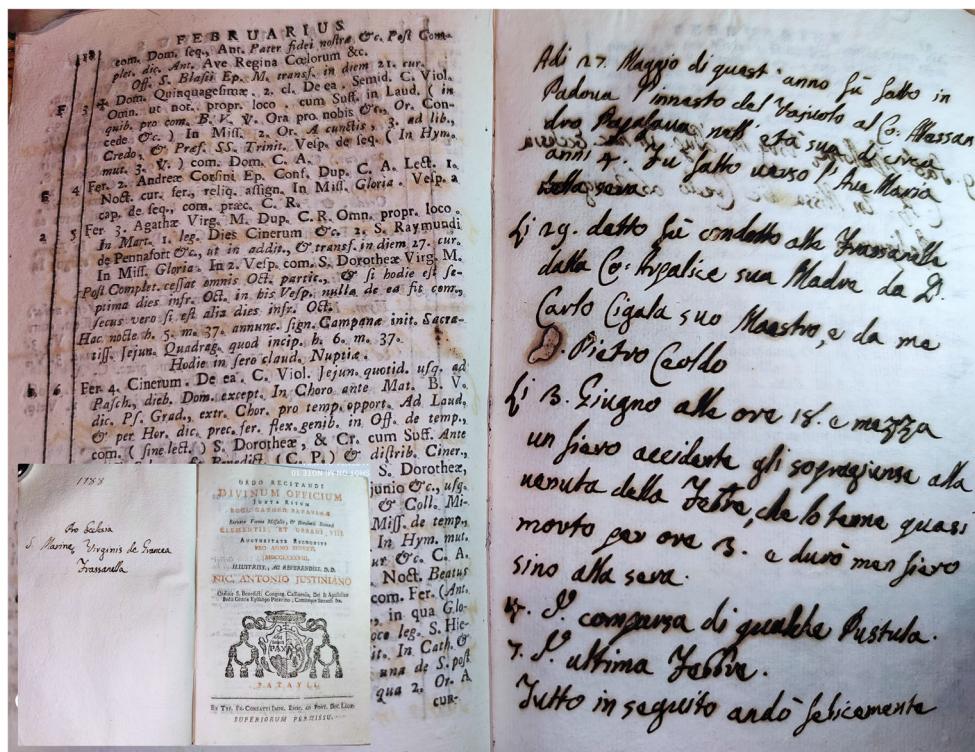 118
FEBRUARIUS
com. Dom. seq., Ant. Pater fidei nostræ &c. Post Com-
plet. dic. Ant. Ave Regina Cœlorum &c.
Off. S. Blasii Ep. M. transf. in diem 21. cur.
F 3 ✠ Dom. Quinquagesimæ. 2. cl. De ea. Semid. C. Viol.
Omn. ut not. propr. loco. cum Suff. in Laud. ( in
quib. pro com. B. V. ℣. Ora pro nobis &c., Or. Con-
cede &c. ) In Miss. 2. Or. A cunctis, 3. ad lib.,
Credo, & Præf. SS. Trinit. Vesp. de seq. ( in Hym.
mut. 3. ℣. ) com. Dom. C. A.
g 4 Fer. 2. Andreæ Corsini Ep. Conf. Dup. C. A. Lect. 1.
Noct. cur. fer., reliq. assign. In Miss. Gloria. Vesp. a
cap. de seq., com. præc. C. R.
a 5 Fer. 3. Agathæ Virg. M. Dup. C. R. Omn. propr. loco.
In Mart. 1. leg. Dies Cinerum &c. 2. S. Raymundi
de Pennafort &c., ut in addit., & transf. in diem 27. cur.
In Miss. Gloria. In 2. Vesp. com. S. Dorotheæ Virg. M.
Post Complet. cessat omnis Oct. partic., & si hodie est se-
ptima dies infr. Oct. in his Vesp. nulla de ea fit com.,
secus vero si est alia dies infr. Oct.
Hac nocte h. 5. m. 37. annunc. sign. Campanæ init. Sacra-
tiss. Jejun. Quadrag. quod incip. h. 6. m. 37.
Hodie in sero claud. Nuptiæ.
b 6 Fer. 4. Cinerum. De ea. C. Viol. Jejun. quotid. usq. ad
Pasch., dieb. Dom. except. In Choro ante Mat. B. V.
dic. Ps. Grad., extr. Chor. pro temp. opport. Ad Laud.
& per Hor. dic. prec. fer. flex. genib. in Off. de temp.,
com. ( sine lect. ) S. Dorotheæ, & Cr. cum Suff. Ante
S. Benedict. (C. P.) & distrib. Ciner.,
S. Dorotheæ,
junio &c., usq.
& Coll. Mi-
Miss. de temp.,
In Hym. mut.
ur &c. C. A.
Noct. Beatus
com. Fer. (Ant.
, in qua Glo-
oco leg. S. Hie-
it. In Cath. &
una de S. post
qua 2. Or. A
cur-
1788
Pro Ecclesia
S. Marinæ Virginis de
Frassanella
ORDO RECITANDI
DIVINUM OFFICIUM
JUXTA RITUM
CLEMENTIS, ET URBANI VIII.
AUCTORITATE RECOGNITIS
PRO ANNO BISSEXT.
MDCCLXXXVIII.
ILLUSTRISS., AC REVERENDISS. D.D.
NIC. ANTONIO JUSTINIANO
Ordinis S. Benedicti Congreg. Cassinensis, Dei & Apostolicæ
Sedis Gratia Episcopo Patavino, Comitique Saccensi &c.
PAX
PATAVII.
SUPERIORUM PERMISSU.
Adi 27. Maggio di quest'anno fù fatto in
Padova l'innesto del Vajuolo al Co: Alessan
dro Papafava nell'età sua di circa
anni 4. Fu fatto verso l'Ave Maria
della sera.
Li 29. detto fù condotto alla Frassanella
dalla Co: Arpalice sua Madre da D.
Carlo Cigala suo Maestro, e da me
D. Pietro Ceoldo
Li 3. Giugno alle ore 18. e mezza
un fiero accidente gli sopragiunse alla
venuta della Febre, che lo tenne quasi
morto per ore 3. e durò men fiero
sino alla sera.
4. comparsa di qualche Pustula.
7. ultima Febre.
Tutto in seguito andò felicemente